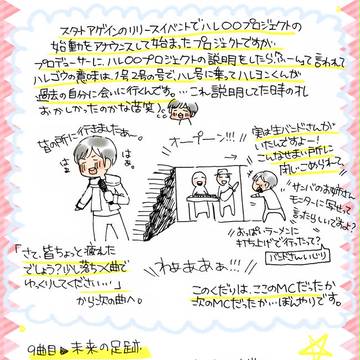 スタトアゲインのリリースイベントでハレ○○プロジェクトの
始動をアナウンスして始まったプロジェクトですが
プロデューサーに、ハレ○○プロジェクトの説明をしたら「ふーん」って言われて
ハレゴウの意味は、1号2号の号で、ハレ号に乗ってハレヨンくんが
過去の自分に会いに行くんです。…これ説明した時の札
おかしかったのかな(苦笑)
女の所に行きましたあー。
はぁ
はぁ
オープーン!!!
実は生バンドさんが
いたんですよー!
こんなせまい所に
閉じこめられて。
サンバのお姉さん
モニターに写せって
言ったらしいですよ?
おっぱいラーメンに
打ち上げで行ったって?
バンドさんいじり
わぁあぁぁ!!!
「さて、皆ちょっと疲れた
でしょう?少し落ちつく曲で
ゆっくりしてください…」
から次の曲へ。
このくだりは、ここのMCだったか
次のMCだったか…ぼんやりです。
9曲目▶未来の足跡